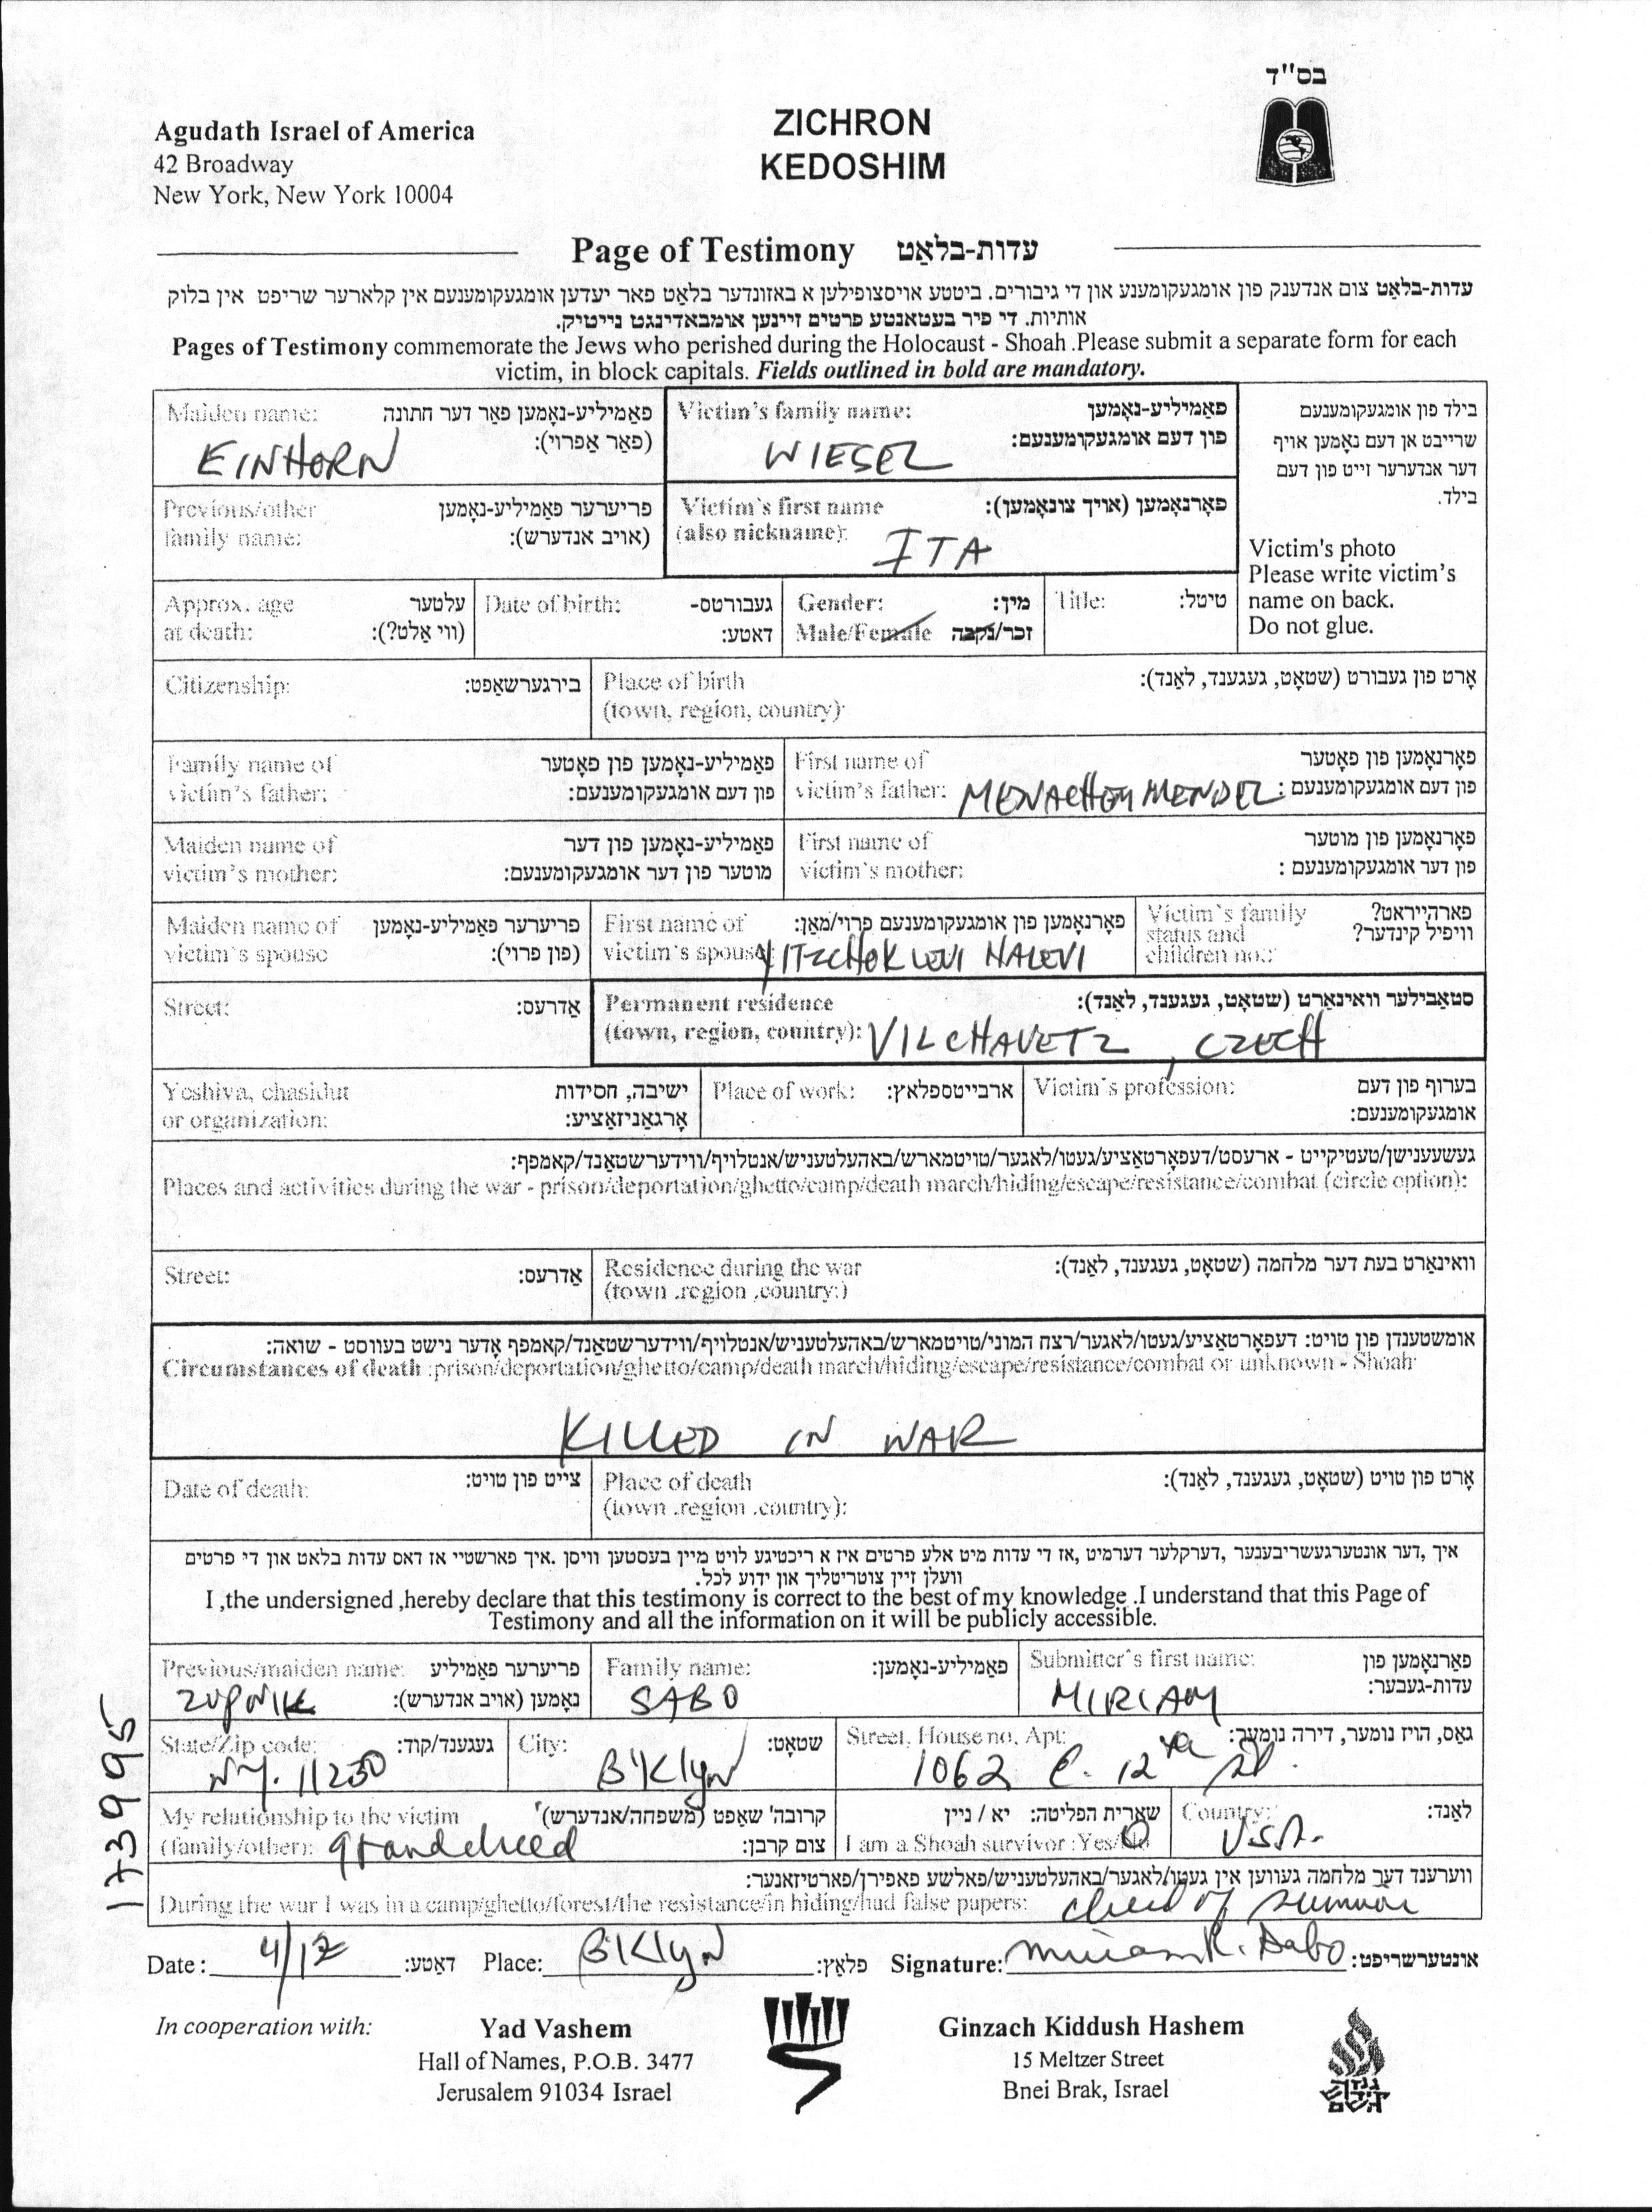 בס"ד
Agudath Israel of America
42 Broadway
New York, New York 10004
ZICHRON
KEDOSHIM
Page of Testimony עדות-בלאַט
עדות-בלאַט צום אנדענק פון אומגעקומענע און די גיבורים. ביטטע אויסצופילען א באזונדער בלאַט פאר יעדען אומגעקומענעם אין קלארער שריפט אין בלוק
אותיות. די פיר בעטאָנטע פרטים זיינען אומבאדינגט נייטיק.
Pages of Testimony commemorate the Jews who perished during the Holocaust - Shoah .Please submit a separate form for each
victim, in block capitals. Fields outlined in bold are mandatory.
Maiden name: פאַמיליע-נאָמען פאַר דער חתונה
(פאַר אַפרוי):
EINHORN
Victim's family name: פאַמיליע-נאָמען
פון דעם אומגעקומענעם:
WIESEL
בילד פון אומגעקומענעם
שרייבט אן דעם נאָמען אויף
דער אנדערער זייט פון דעם
בילד.
Victim's photo
Please write victim's
name on back.
Do not glue.
Previous/other פריערער פאַמיליע-נאָמען
family name: (אויב אנדערש):
Victim's first name פאָרנאָמען (אויך צונאָמען):
(also nickname):
ITA
Approx. age עלטער
at death: (ווי אַלט?):
Date of birth: געבורטס-
דאטע:
Gender: מין:
Male/Female זכר/נקבה
Title: טיטל:
Citizenship: בירגערשאַפט:
Place of birth אָרט פון געבורט (שטאָט, געגענד, לאַנד):
(town, region, country):
Family name of פאַמיליע-נאָמען פון פאָטער
victim's father: פון דעם אומגעקומענעם:
First name of פאָרנאָמען פון פאָטער
victim's father: MENACHEM MENDEL פון דעם אומגעקומענעם:
Maiden name of פאַמיליע-נאָמען פון דער
victim's mother: מוטער פון דער אומגעקומענעם:
First name of פאָרנאָמען פון מוטער
victim's mother: פון דער אומגעקומענעם :
Maiden name of פריערער פאַמיליע-נאָמען
victim's spouse (פון פרוי):
First name of פאָרנאָמען פון אומגעקומענעם פרוי/מאַן:
victim's spouse: YITZCHOK LEVI HALEVI
Victim's family פארהייראט?
status and וויפיל קינדער?
children no.:
Street: אַדרעס:
Permanent residence סטאַבילער וואוינאָרט (שטאָט, געגענד, לאַנד):
(town, region, country): VILCHAVETZ , CZECH
Yeshiva, chasidut ישיבה, חסידות
or organization: אָרגאַניזאַציע:
Place of work: ארבייטספלאַץ:
Victim's profession: בערוף פון דעם
אומגעקומענעם:
געשעענישן/טעטיקייט - ארעסט/דעפאָרטאַציע/געטו/לאגער/טויטמארש/באהעלטעניש/אנטלויף/ווידערשטאַנד/קאמפף:
Places and activities during the war - prison/deportation/ghetto/camp/death march/hiding/escape/resistance/combat (circle option):
Street: אַדרעס:
Residence during the war וואוינאָרט בעת דער מלחמה (שטאָט, געגענד, לאַנד):
(town .region .country:)
אומשטענדן פון טויט: דעפאָרטאַציע/געטו/לאגער/רצח המוני/טויטמארש/באהעלטעניש/אנטלויף/ווידערשטאַנד/קאמפף אָדער נישט בעווסט - שואה:
Circumstances of death :prison/deportation/ghetto/camp/death march/hiding/escape/resistance/combat or unknown - Shoah
KILLED IN WAR
Date of death: צייט פון טויט:
Place of death אָרט פון טויט (שטאָט, געגענד, לאַנד):
(town .region .country):
איך ,דער אונטערגעשריבענער ,דערקלער דערמיט ,אז די עדות מיט אלע פרטים איז א ריכטיגע לויט מיין בעסטען וויסן .איך פארשטיי אז דאס עדות בלאט און די פרטים
וועלן זיין צוטריטליך און ידוע לכל.
I ,the undersigned ,hereby declare that this testimony is correct to the best of my knowledge .I understand that this Page of
Testimony and all the information on it will be publicly accessible.
Previous/maiden name: פריערער פאַמיליע
נאָמען (אויב אנדערש):
ZUPNIK
Family name: פאַמיליע-נאָמען:
SABO
Submitter's first name: פארנאָמען פון
עדות-געבער:
MIRIAM
State/Zip code: געגענד/קוד:
NY. 11230
City: שטאָט:
B'Klyn
Street, House no, Apt: גאַס, הויז נומער, דירה נומער:
1062 E. 12th St.
My relationship to the victim קרובה' שאפט (משפחה/אנדערש)
(family/other): grandchild צום קרבן:
שארית הפליטה: יא / ניין
I am a Shoah survivor :Yes/No
Country: לאַנד:
U.S.A.
ווערענד דער מלחמה געווען אין געטו/לאגער/באהעלטעניש/פאלשע פאפירן/פארטיזאנער:
During the war I was in a camp/ghetto/forest/the resistance/in hiding/had false papers: child of survivor
Date: 4/12 דאַטע: Place: BKlyn פלאַץ: Signature: Miriam R. Sabo אונטערשריפט:
173995
In cooperation with:
Yad Vashem
Hall of Names, P.O.B. 3477
Jerusalem 91034 Israel
Ginzach Kiddush Hashem
15 Meltzer Street
Bnei Brak, Israel
גנזך
קידוש
השם